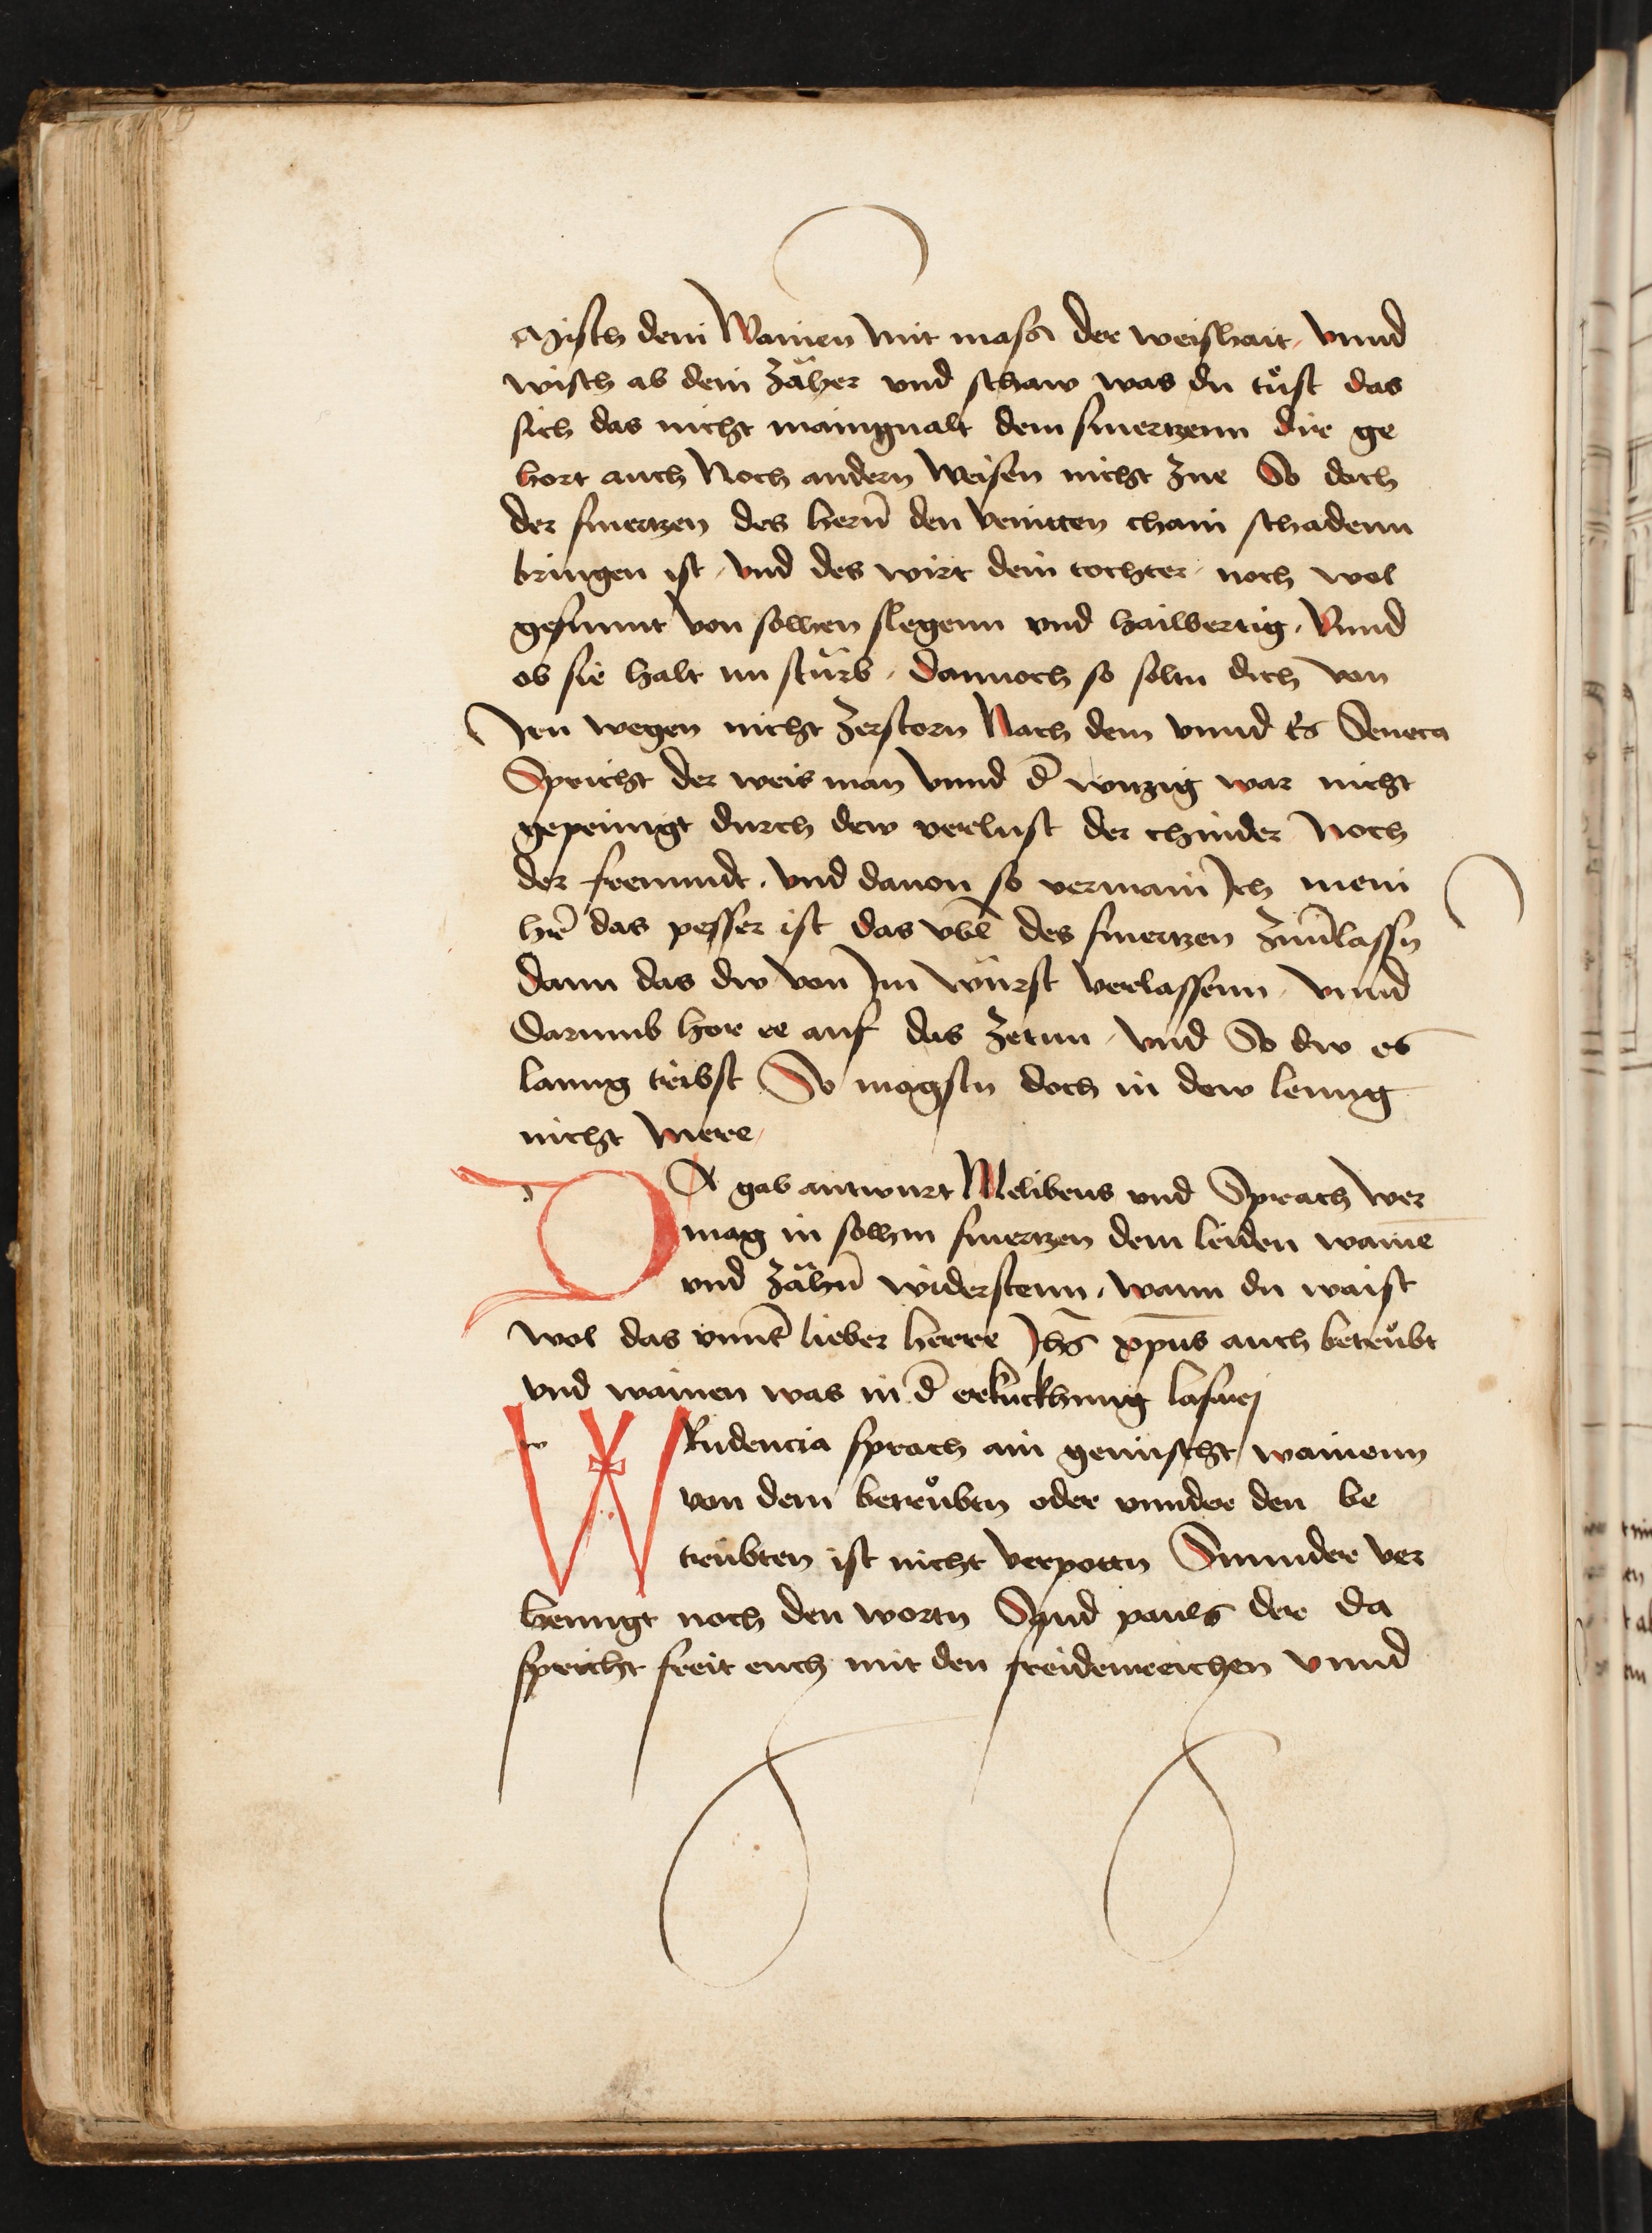 Misch dein Wainen mit mass der weishait / vnnd
wisch ab dein zäher vnd schaw was du tůst das
sich das nicht mainguält dem smertzenn die ge
hort auch Noch andern Weisen nicht zue So doch
der smertzen des hern̄ den chain schadenn
bringen ist / vnd des wirt dein tochter / noch wol
gesunnt von solhen slegenn vnd hailbertig / Vnnd
ob sie halt nu stürb / dannoch so soltu dich von
Jrn wegen nicht zerstorn Nach dem vnnd Seneca
Spricht der weis man vnnd d̄ witzig war nicht
gepeinigt durch dew verlust der chinder Noch
der frewndt / vnd dauon so vermain Jch mein
hr̄e das pesser ist das vbl̄ des smertzen
dann das dw von Jm würst verlassenn / vnnd
Darumb hor ee auf das zetun / vnd So dw es
lanng treibst So magstu doch in dew lenng
nicht were /
DA gab antwurt Melibeus vnd Sprach wer
mag in solhm smertzen dem leiden waine
vnd zähn̄ widerstenn / wann du waist
wol das vnns̄ lieber herre Jhs̄ xpūs auch betrůbt
vnd wainen was in d̄ erkuckhung lasari
W Rudencia sprach ain gemischt wainenn
von dem betrůbtn oder vnnder den be
trübten ist nicht verpottn Sunnder ver
henngt noch den wortn Sand pauls der da
spricht freit euch mit den freidenreichen vnnd